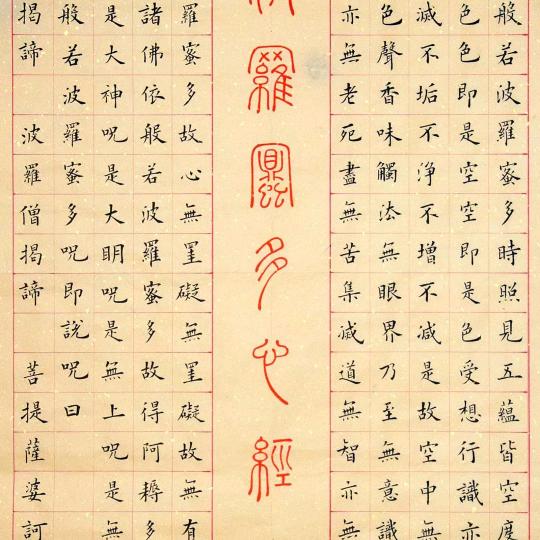 般若波羅蜜多時照見五蘊皆空度
色色即是空空即是色受想行識亦
滅不垢不淨不增不減是故空中無
色聲香味觸法無眼界乃至無意識
亦無老死盡無苦集滅道無智亦無
羅蜜多心經
羅蜜多故心無罣礙無罣礙故無有
諸佛依般若波羅蜜多故得阿耨多
是大神咒是大明咒是無上咒是無
般若波羅蜜多咒即說咒曰
揭諦 波羅僧揭諦 菩提薩婆訶